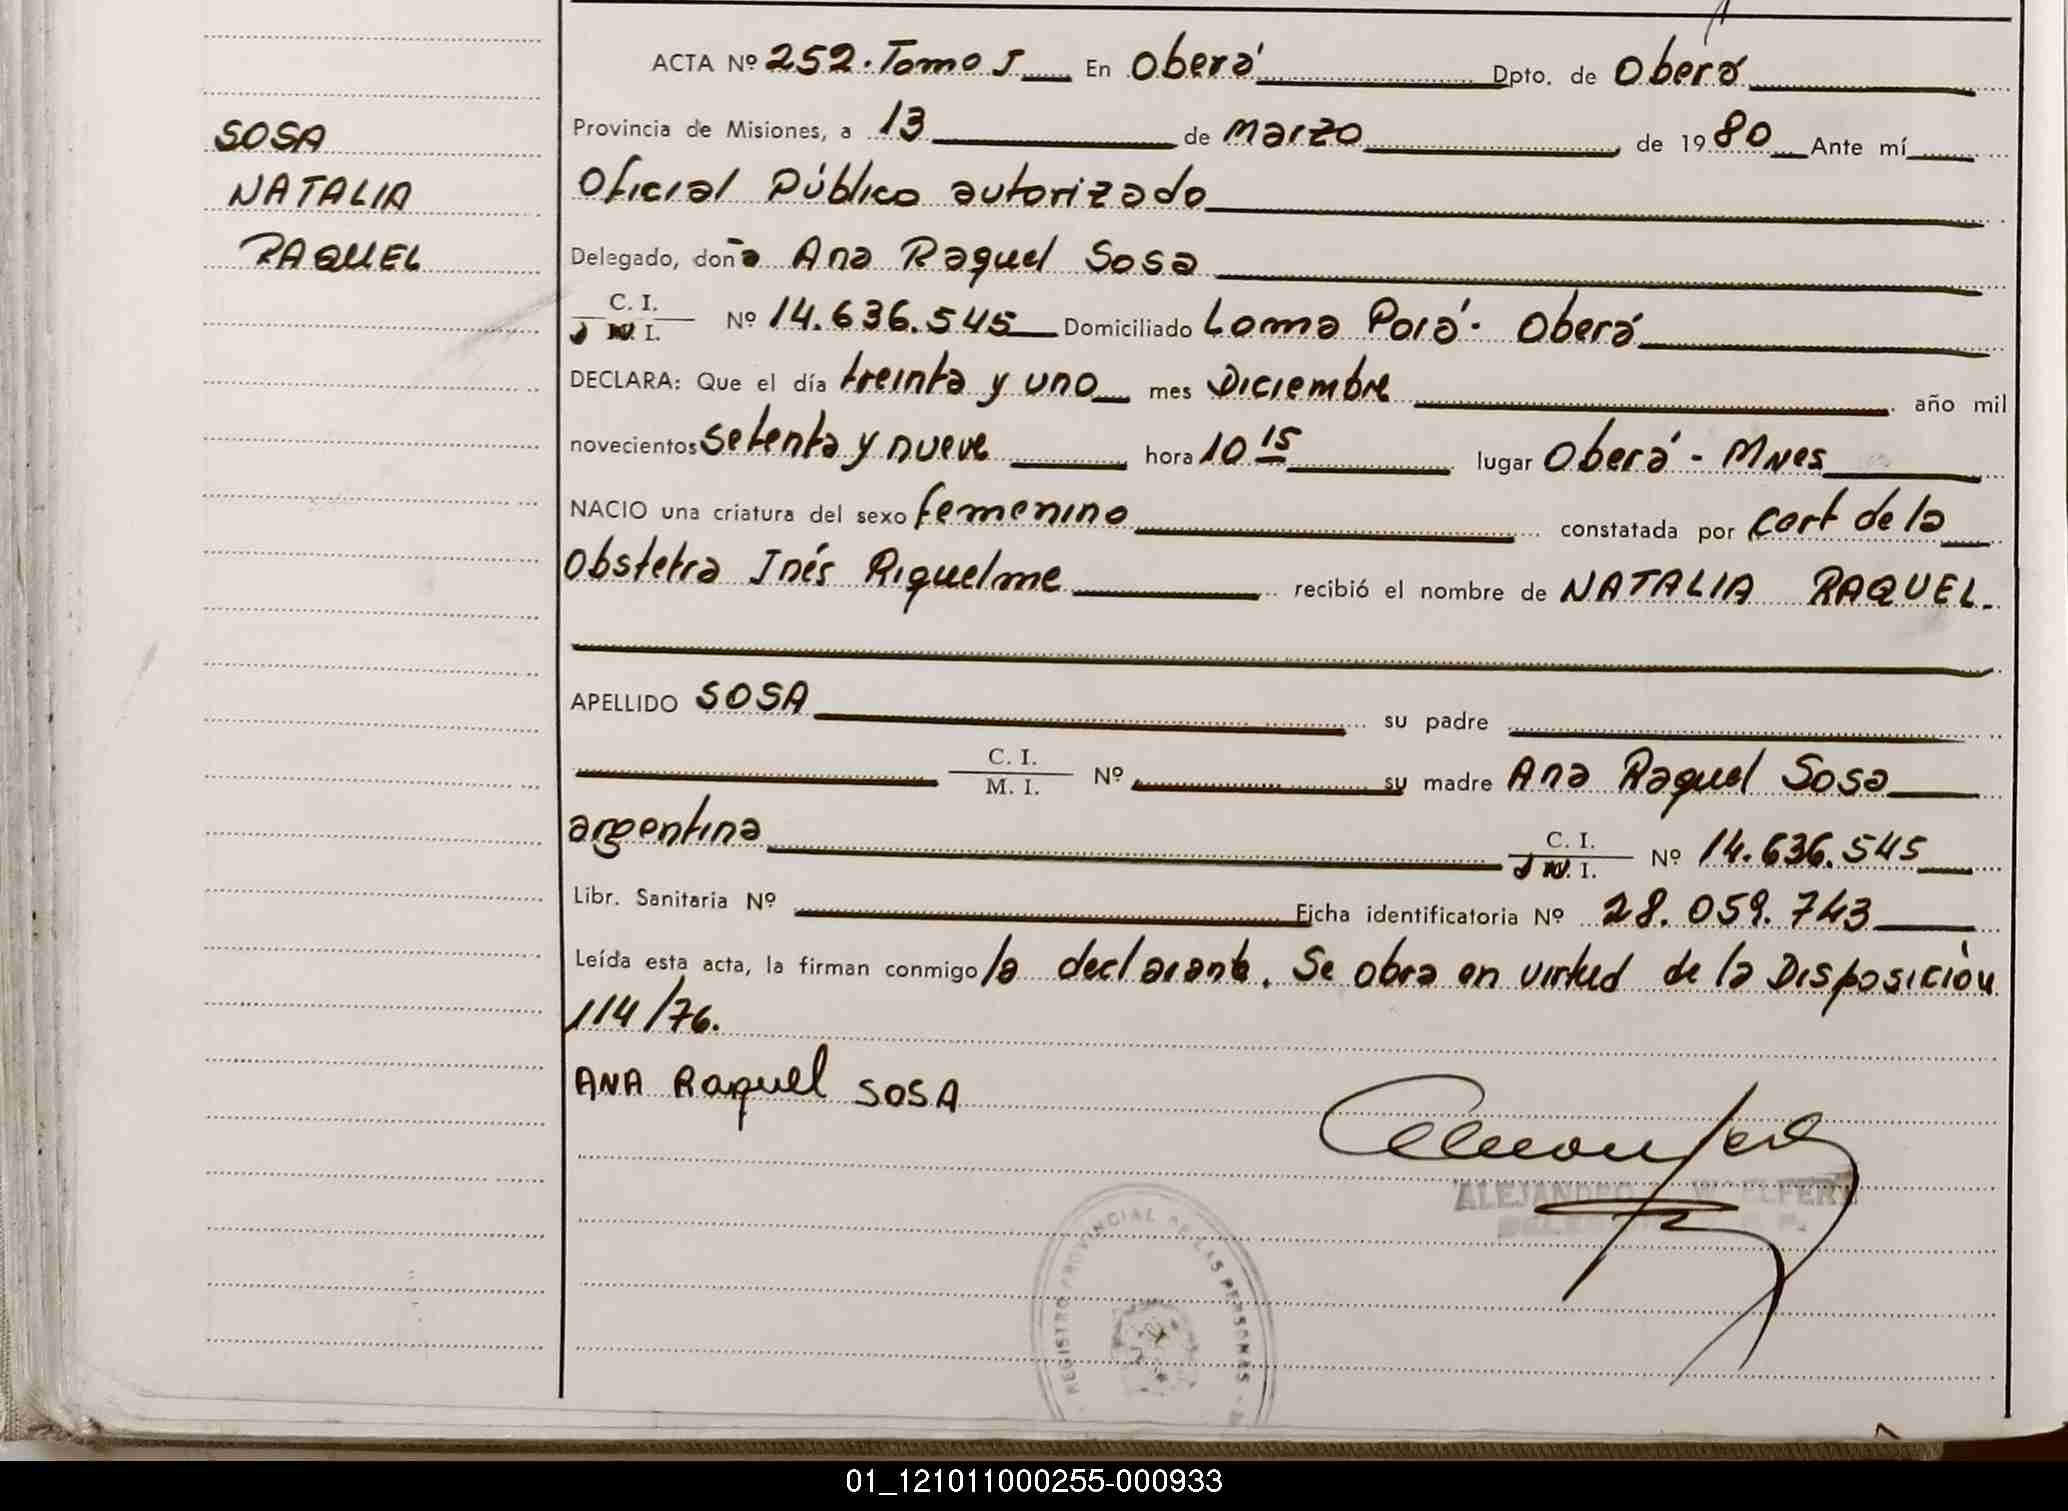 SOSA
NATALIA
RAQUEL
ACTA Nº 252. Tomo I En Oberá Dpto. de Oberá
Provincia de Misiones, a 13 de Marzo de 1980 Ante mí
Oficial Público autorizado
Delegado, doña Ana Raquel Sosa
C. I.
Nº 14.636.545 Domiciliado Loma Porá - Oberá
DECLARA: Que el día treinta y uno mes Diciembre año mil
novecientos setenta y nueve hora 10 15 lugar Oberá - Mnes
NACIO una criatura del sexo femenino constatada por cert de la
Obstetra Inés Riquelme recibió el nombre de NATALIA RAQUEL.
APELLIDO SOSA su padre
C. I.
M. I. Nº su madre Ana Raquel Sosa
argentina C. I. Nº 14.636.545
Libr. Sanitaria Nº Ficha identificatoria Nº 28.059.743
Leída esta acta, la firman conmigo la declarante. Se obra en virtud de la Disposición
114/76.
ANA Raquel SOSA
ALEJANDRO
REGISTRO PROVINCIAL DE LAS PERSONAS
01_121011000255-000933